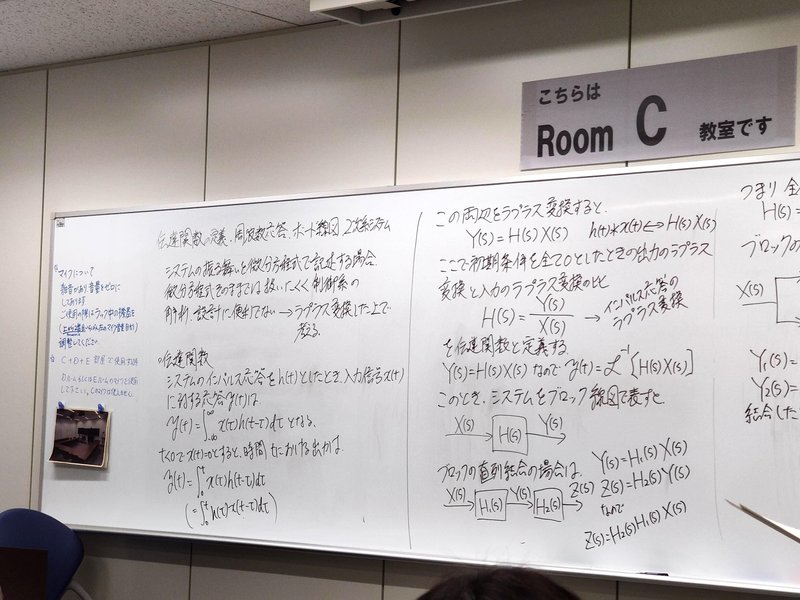 こちらは
Room C 教室です
マイクについて
雑音があり音量をゼロに
してあります
ご使用の際はラック中の機器を
調整してください。
C+D+E 部屋で使用する時
伝達関数の定義、周波数応答、ボード線図、2次系システム
システムの振る舞いを微分方程式で記述する場合
微分方程式そのままでは扱いにくく制御系の
解析・設計に便利でない→ラプラス変換した上で
考える。
○伝達関数
システムのインパルス応答をh(t)としたとき、入力信号x(t)
に対する応答y(t)は
y(t)=∫_{-∞}^{∞} x(τ)h(t-τ)dτ となる。
t<0でx(t)=0とすると、時間tにおける出力は
y(t)=∫_0^t x(τ)h(t-τ)dτ
(=∫_0^t h(τ)x(t-τ)dτ)
この両辺をラプラス変換すると、
Y(s)=H(s)X(s) h(t)*x(t)↔H(s)X(s)
ここで初期条件を全て0としたときの出力のラプラス
変換と入力のラプラス変換の比
H(s)=Y(s)/X(s) →インパルス応答の
ラプラス変換
を伝達関数と定義する。
Y(s)=H(s)X(s)なので y(t)=ℒ⁻¹[H(s)X(s)]
このとき、システムをブロック線図で表すと
X(s) H(s) Y(s)
ブロックの直列結合の場合は、
Y(s)=H₁(s)X(s)
X(s) H₁(s) Y(s) H₂(s) Z(s)
Z(s)=H₂(s)Y(s)
なので
Z(s)=H₂(s)H₁(s)X(s)
つまり 全
H(s)=
ブロックの
X(s)
Y₁(s)=
Y₂(s)=
結合した